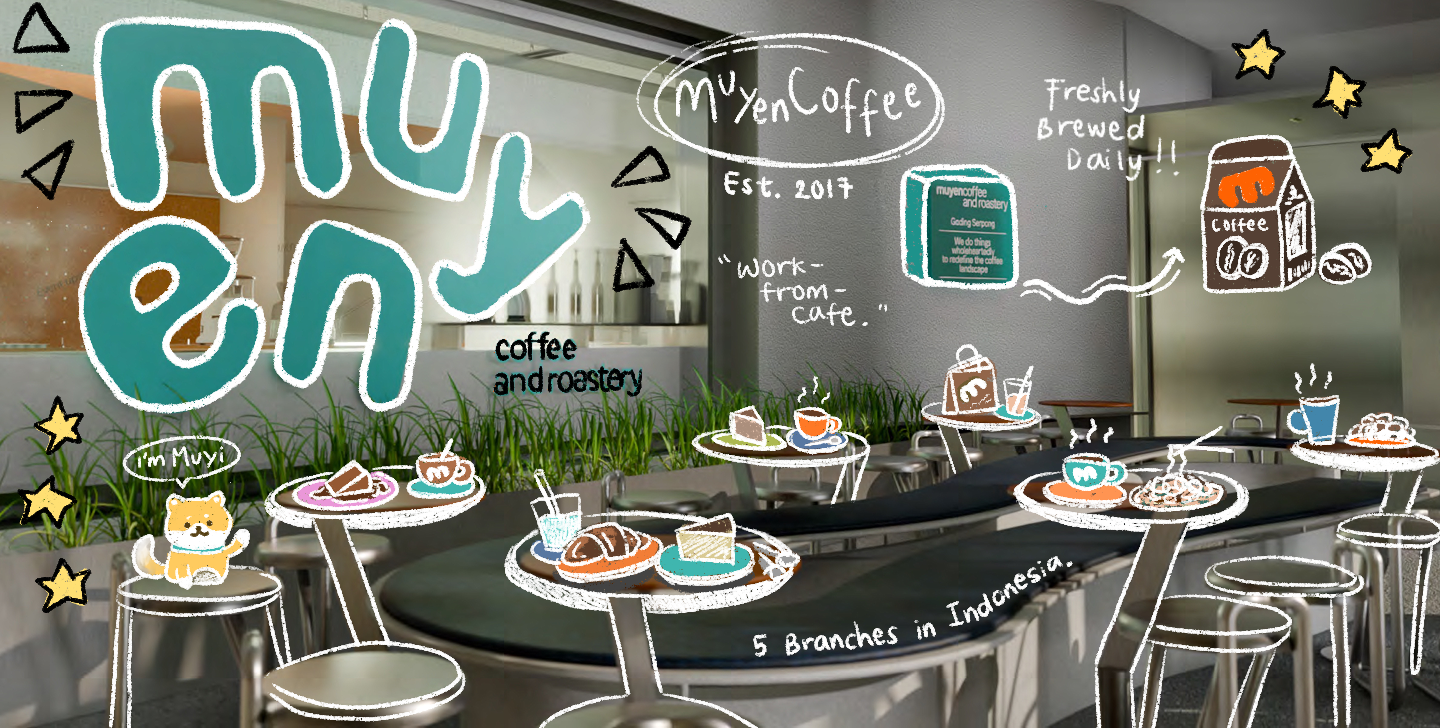 muy
en
coffee
and roastery
muyenCoffee
Est. 2017
"Work-
from-
Cafe."
muyencoffee
and roastery
Gading Serpong
We do things
wholeheartedly
to redefine the coffee
landscape
Freshly
Brewed
Daily!!
m
Coffee
i'm Muyi
m
m
m
5 Branches in Indonesia.